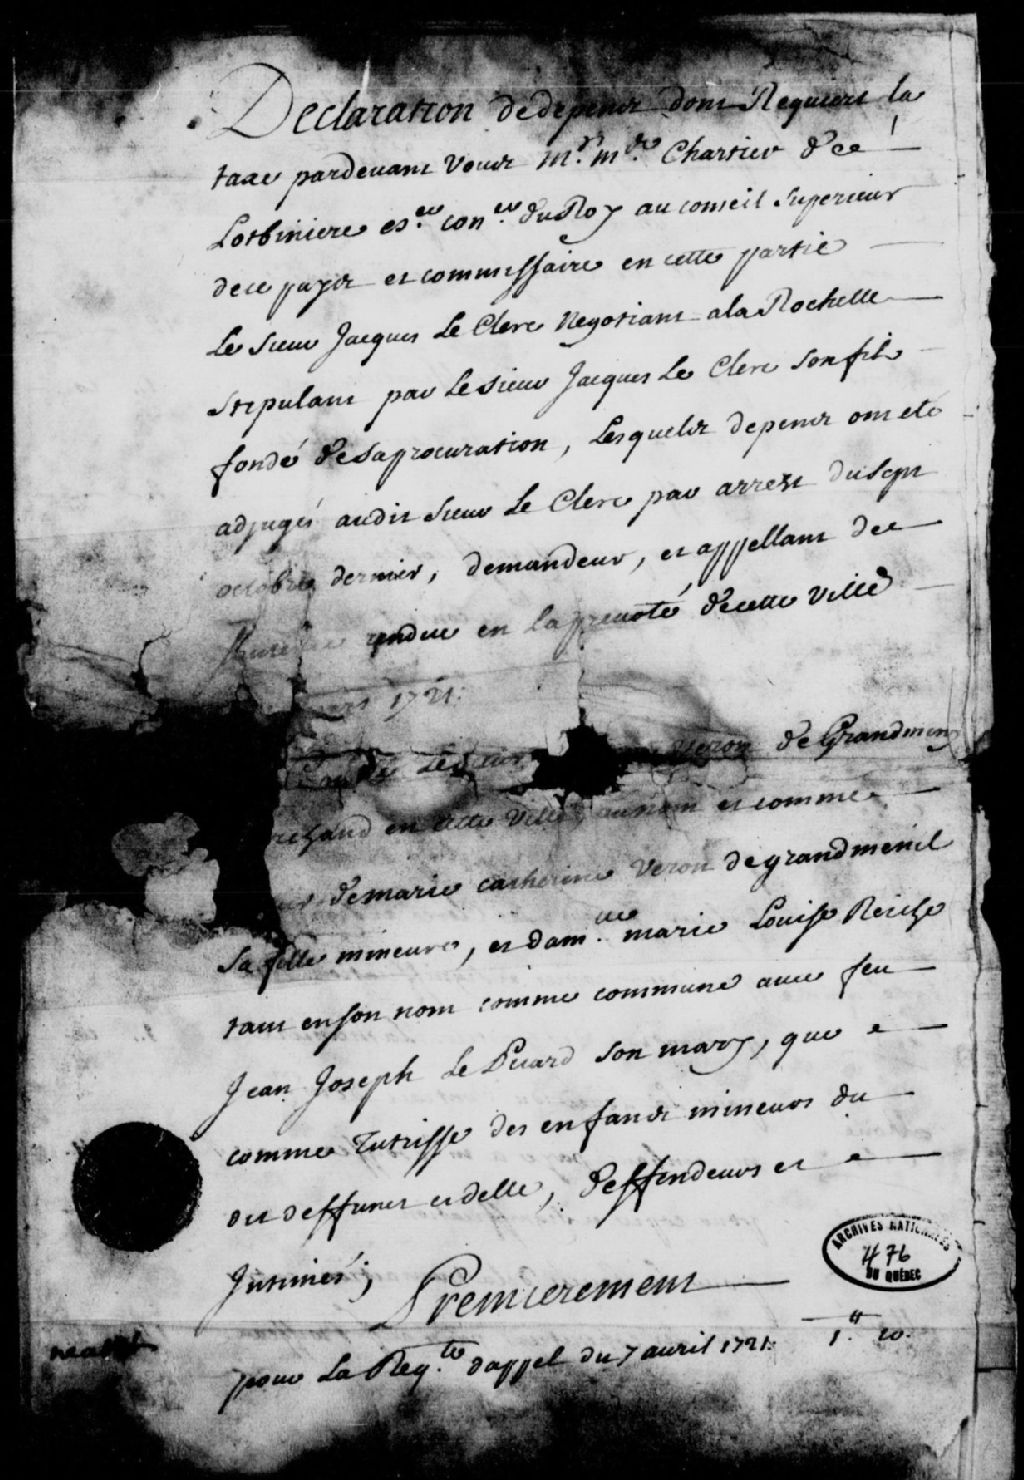 Declaration de depens dont Requiert la
taxe pardevant Vous Mr. Me. Chartier de
Lotbiniere es.er con.er du Roy au conseil Superieur
de ce pays et commissaire en cette partie
Le Sieur Jacques Le Clerc Negotiant a la Rochelle
stipulant par Le Sieur Jacques Le Clerc Son fils
fondé de Sa procuration, Lesquels depens ont eté
adjugés audit Sieur Le Clerc par arrest du Sept
octobre dernier, demandeur, et appellant de
rendue en la prevoté de cette Ville
mars 1721.
Contre Le Sieur Veron de Grandmenil
rchand en cette Ville, au nom et comme
de marie catherine Veron de grandmenil
Sa fille mineure, et dam.lle marie Louise
tant en son nom comme commune avec feu
Jean Joseph Le Picard Son mary, que
comme Tutrisse des enfans mineurs du
dit deffunct et delle, deffendeurs et
Intimés;
Premierement
pour La Req.te dappel du 7 avril 1721. 1.tt 10.
ARCHIVES NATIONALES
476
DU QUÉBEC